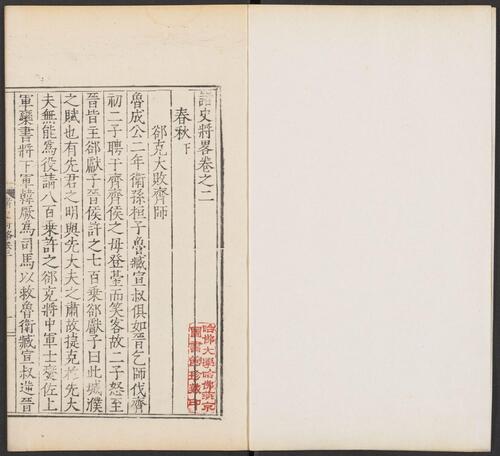 諸史將畧卷之二
春秋下
郤克大敗齊師
魯成公二年衛孫桓子魯臧宣叔俱如晉乞師伐齊
初二子聘于齊齊侯之母登臺而笑客故二子怒至
晉皆主郤獻子晉侯許之七百乗郤獻子曰此城濮
之賦也有先君之明與先大夫之肅故捷克於先大
夫無能爲役請八百乗許之郤克將中軍士燮佐上
軍欒書將下軍韓厥爲司馬以救魯衛臧宣叔逆晉
哈佛大學哈佛燕京
圖書館珍藏印